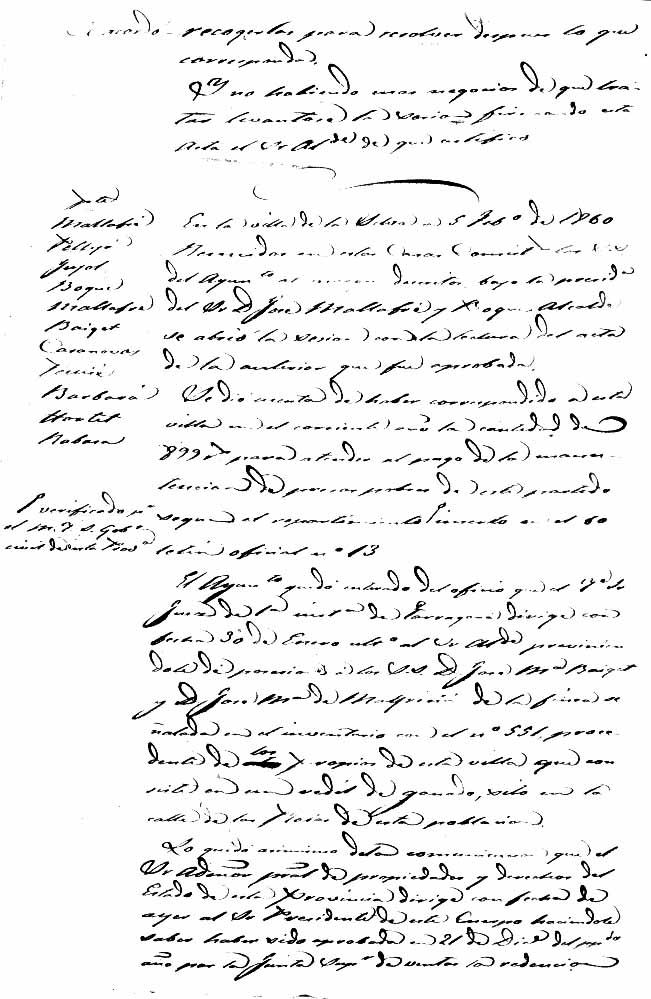 Acordó recogerlas para resolver despues lo que
corresponda.
Y no habiendo mas negocios de que tra-
tar levantose la sesion firmando esta
Acta el Sr Alde de que certifico
Pte
Mallafré
Pellejá
Jujol
Boqué
Mallafré
Baiget
Casanovas
Ferré
Barbará
Hortet
Rabasa
En la villa de la Selva a 5 Febo de 1860
Reunidos en estas Casas los
del Ayunto al bajo la presida
del Sr D. José Mallafré y Roque Alcalde
se abrió la sesion con la lectura del acta
de la anterior que fue aprobada.
Se dió cuenta de haber correspondido a esta
villa en el corriente año la cantidad de
899 para atender al pago de la manu-
tencion de presos pobres de este partido
segun el repartimiento inserto en el Bo
letin oficial no 13
verificado pr
el M. I. S. Gobr
civil de esta Prova
El Ayunto quedó enterado del oficio que el Sr
Juez de 1a insta de Tarragona dirige con
fecha 30 de Enero ulto al Sr Alde
dole de posesion a los S.S. D. José Ma Baiget
y D. José Ma de de la finca se
ñalada en el inventario con el no 551, proce-
dente de los Propios de esta villa que con
siste en un redil de ganado, sito en la
calle de las de esta poblacion.
Lo quedó asimismo dela comunicacion que el
Sr Admor pral de propiedades y derechos del
Estado de esta Provincia dirige con fecha de
ayer al Sr Presidente de este Cuerpo haciendole
saber haber sido aprobada en 21 de Dice del ppdo
año por la Junta Supr de ventas la redencion